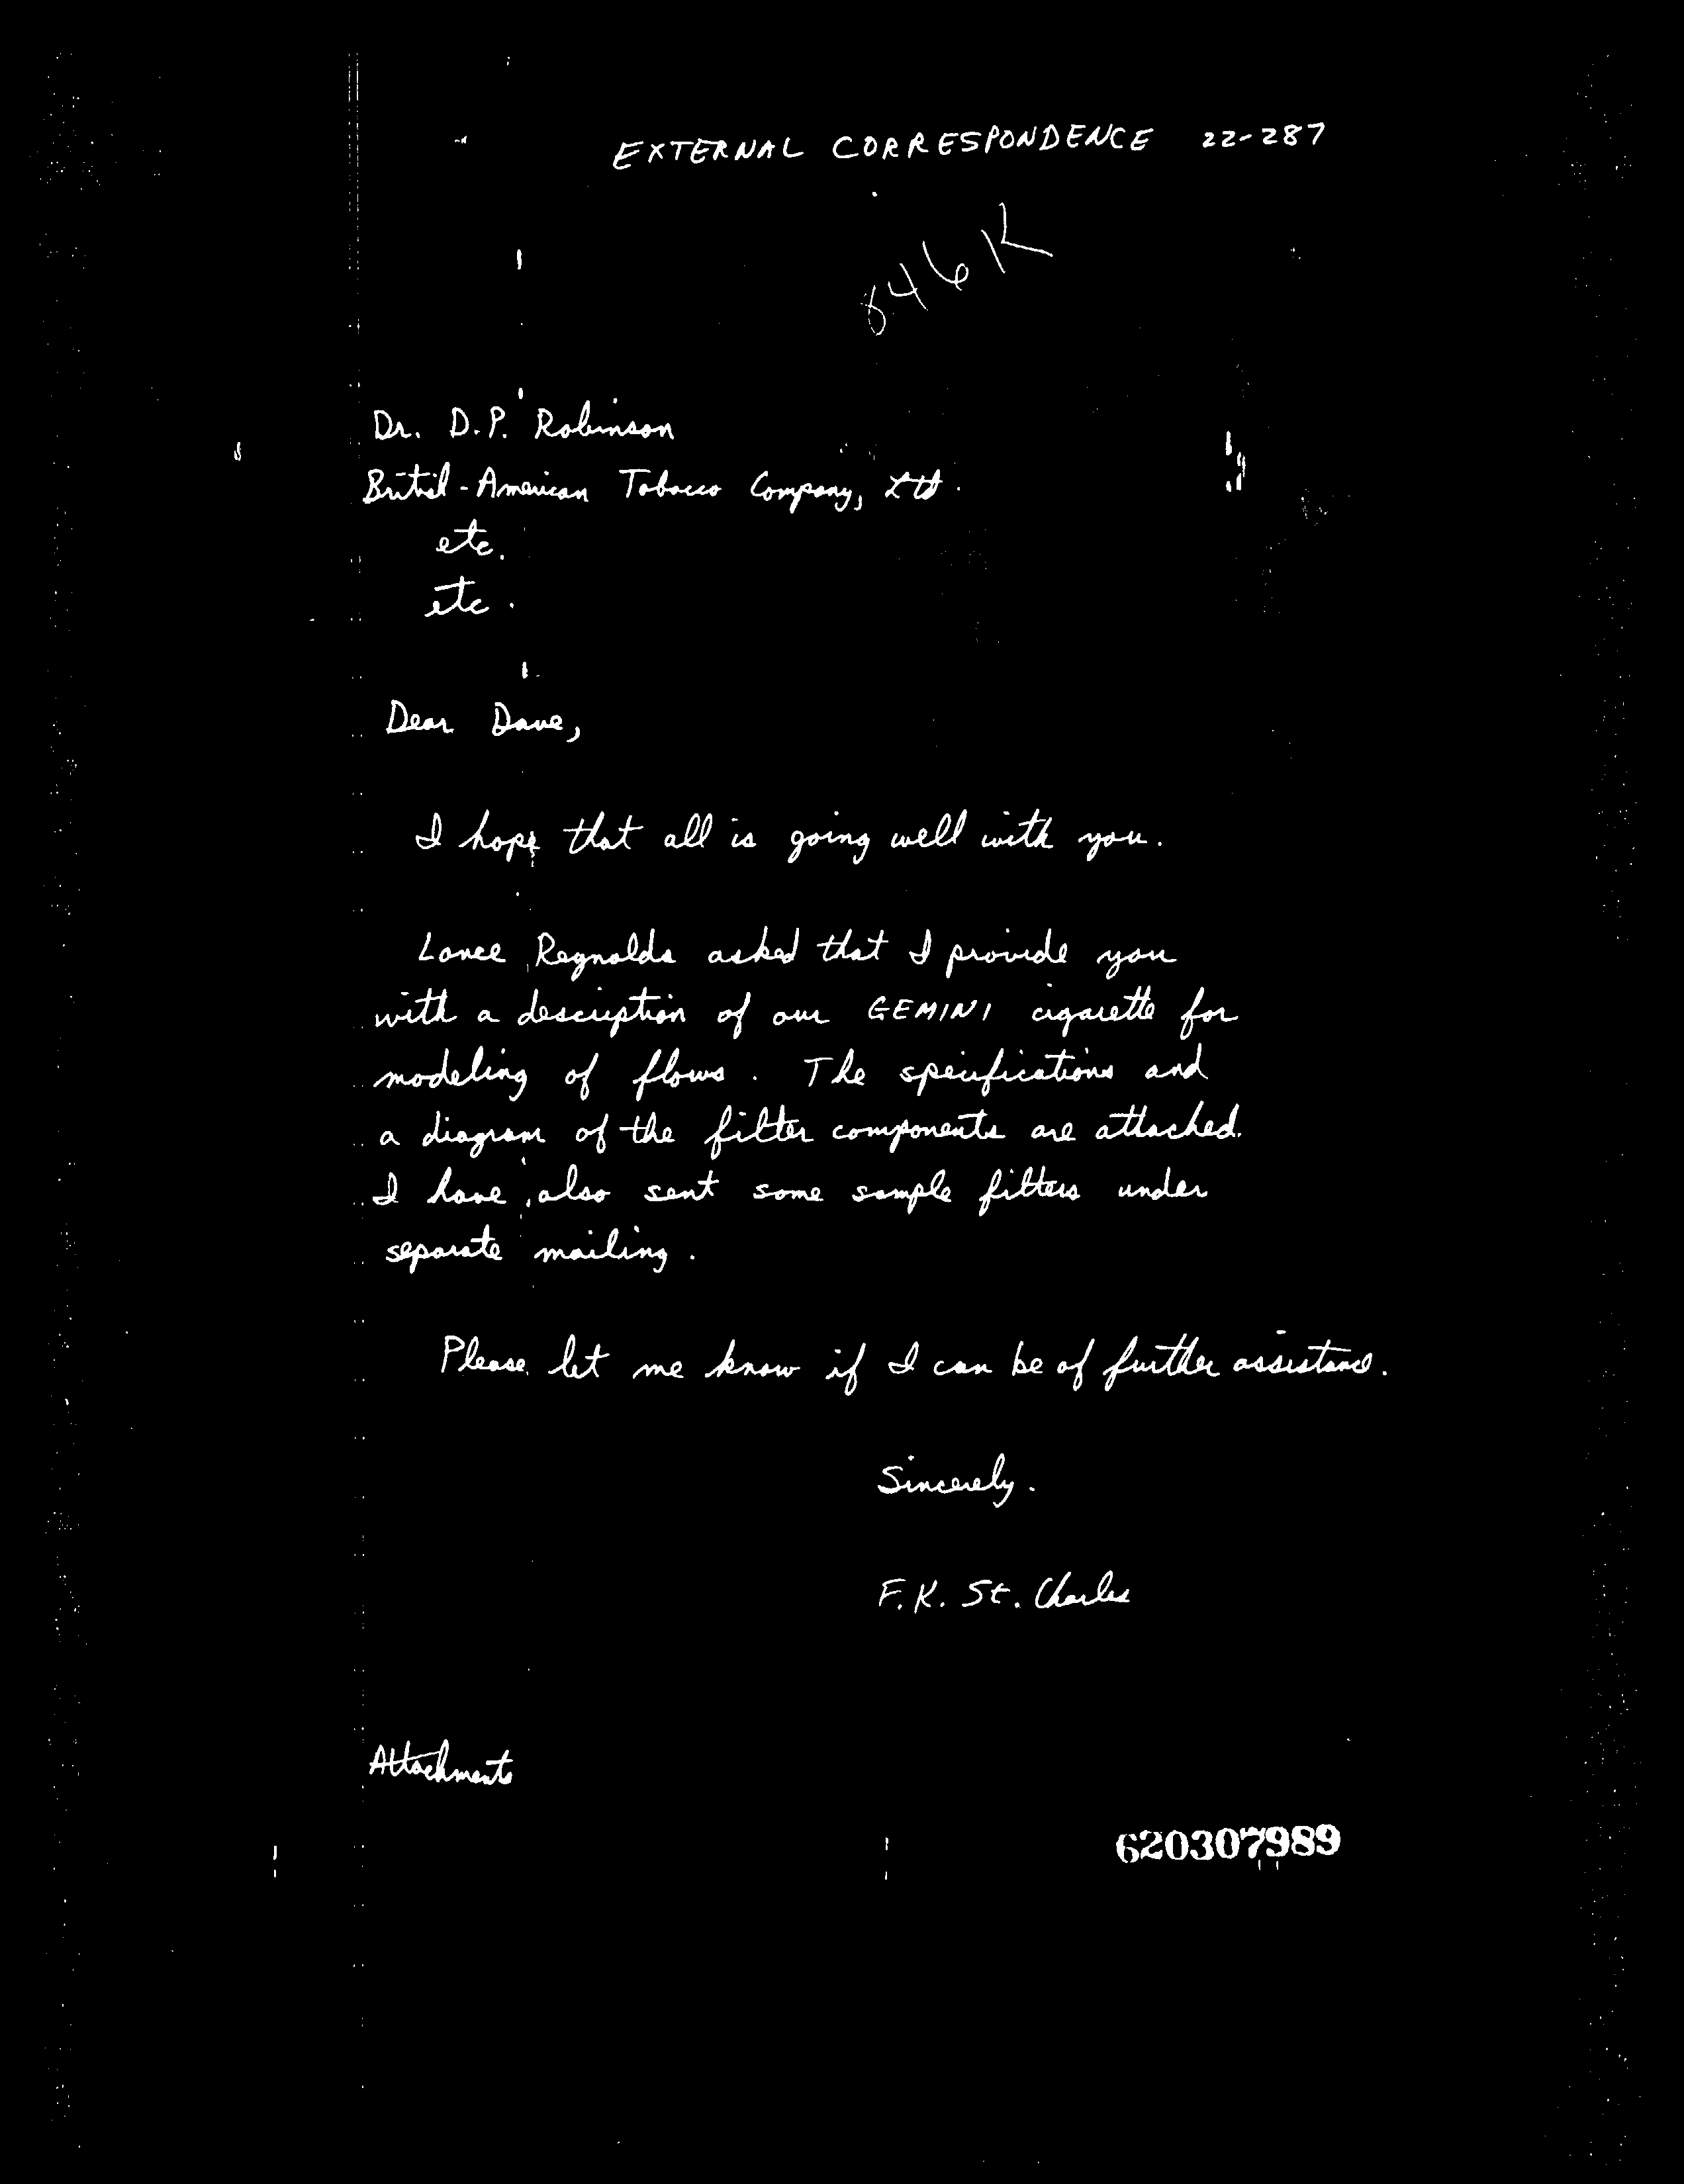 EXTERNAL CORRESPONDENCE 22-287
846K
Dr. D.P. Robinson
British-American Tobacco Company, Ltd.
etc.
etc.
Dear Dave,
I hope that all is going well with you.
Lance Reynolds asked that I provide you
with a description of our GEMINI cigarette for
modeling of flows. The specifications and
a diagram of the filter components are attached.
I have also sent some sample filters under
separate mailing.
Please let me know if I can be of further assistance.
Sincerely.
F.K. St. Charles
Attachments
620307989